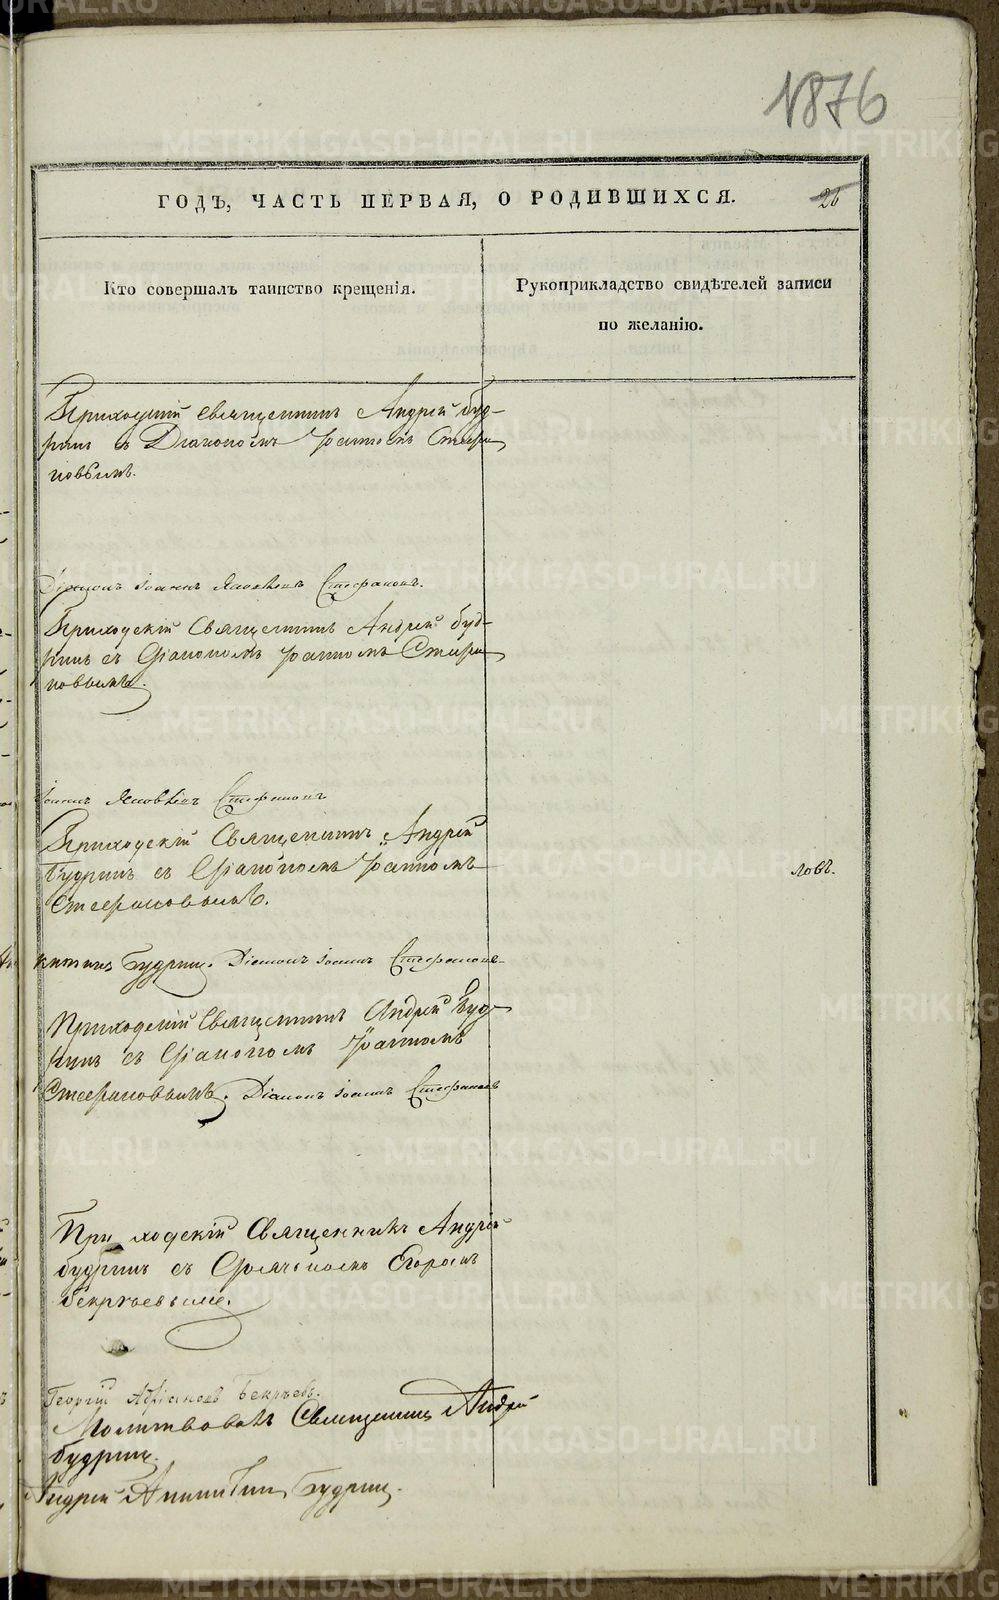 1876
ГОДЪ, ЧАСТЬ ПЕРВАЯ, О РОДИВШИХСЯ.
26
Кто совершалъ таинство крещенія.
Рукоприкладство свидѣтелей записи
по желанію.
Приходскій Священникъ Андрей Буд-
ринъ съ Діакономъ Іоанномъ Стефа
новымъ.
Діяконъ Іоаннъ Яковлевъ Стефановъ.
Приходскій Священникъ Андрей Буд-
ринъ съ Діакономъ Іоанномъ Стефа
новымъ.
Іоаннъ Яковлевъ Стефановъ
Приходскій Священникъ Андрей
Будринъ съ Діакономъ Іоанномъ
Стефановымъ.
ловъ.
Будринъ. Діяконъ Іоаннъ Стефановъ
Приходскій Священникъ Андрей Буд-
ринъ съ Діакономъ Іоанномъ
Стефановымъ. Діаконъ Іоаннъ Стефановъ
Приходскій Священникъ Андрей
Будринъ съ Егоромъ
Бекряевымъ.
Георгій Бекряевъ.
Молитвовалъ Священникъ Андрей
Будринъ.
Андрей Будринъ.
METRIKI.GASO-URAL.RU